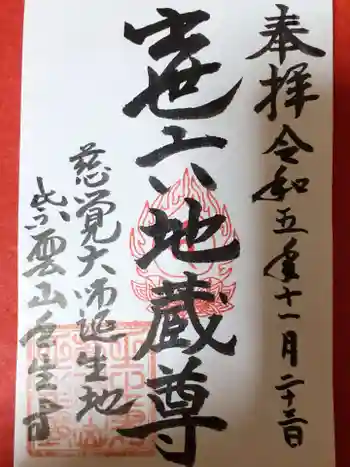 奉拝 令和五年十一月二十三日
世六地蔵尊
慈覚大师誕生地
紫雲山壬生寺